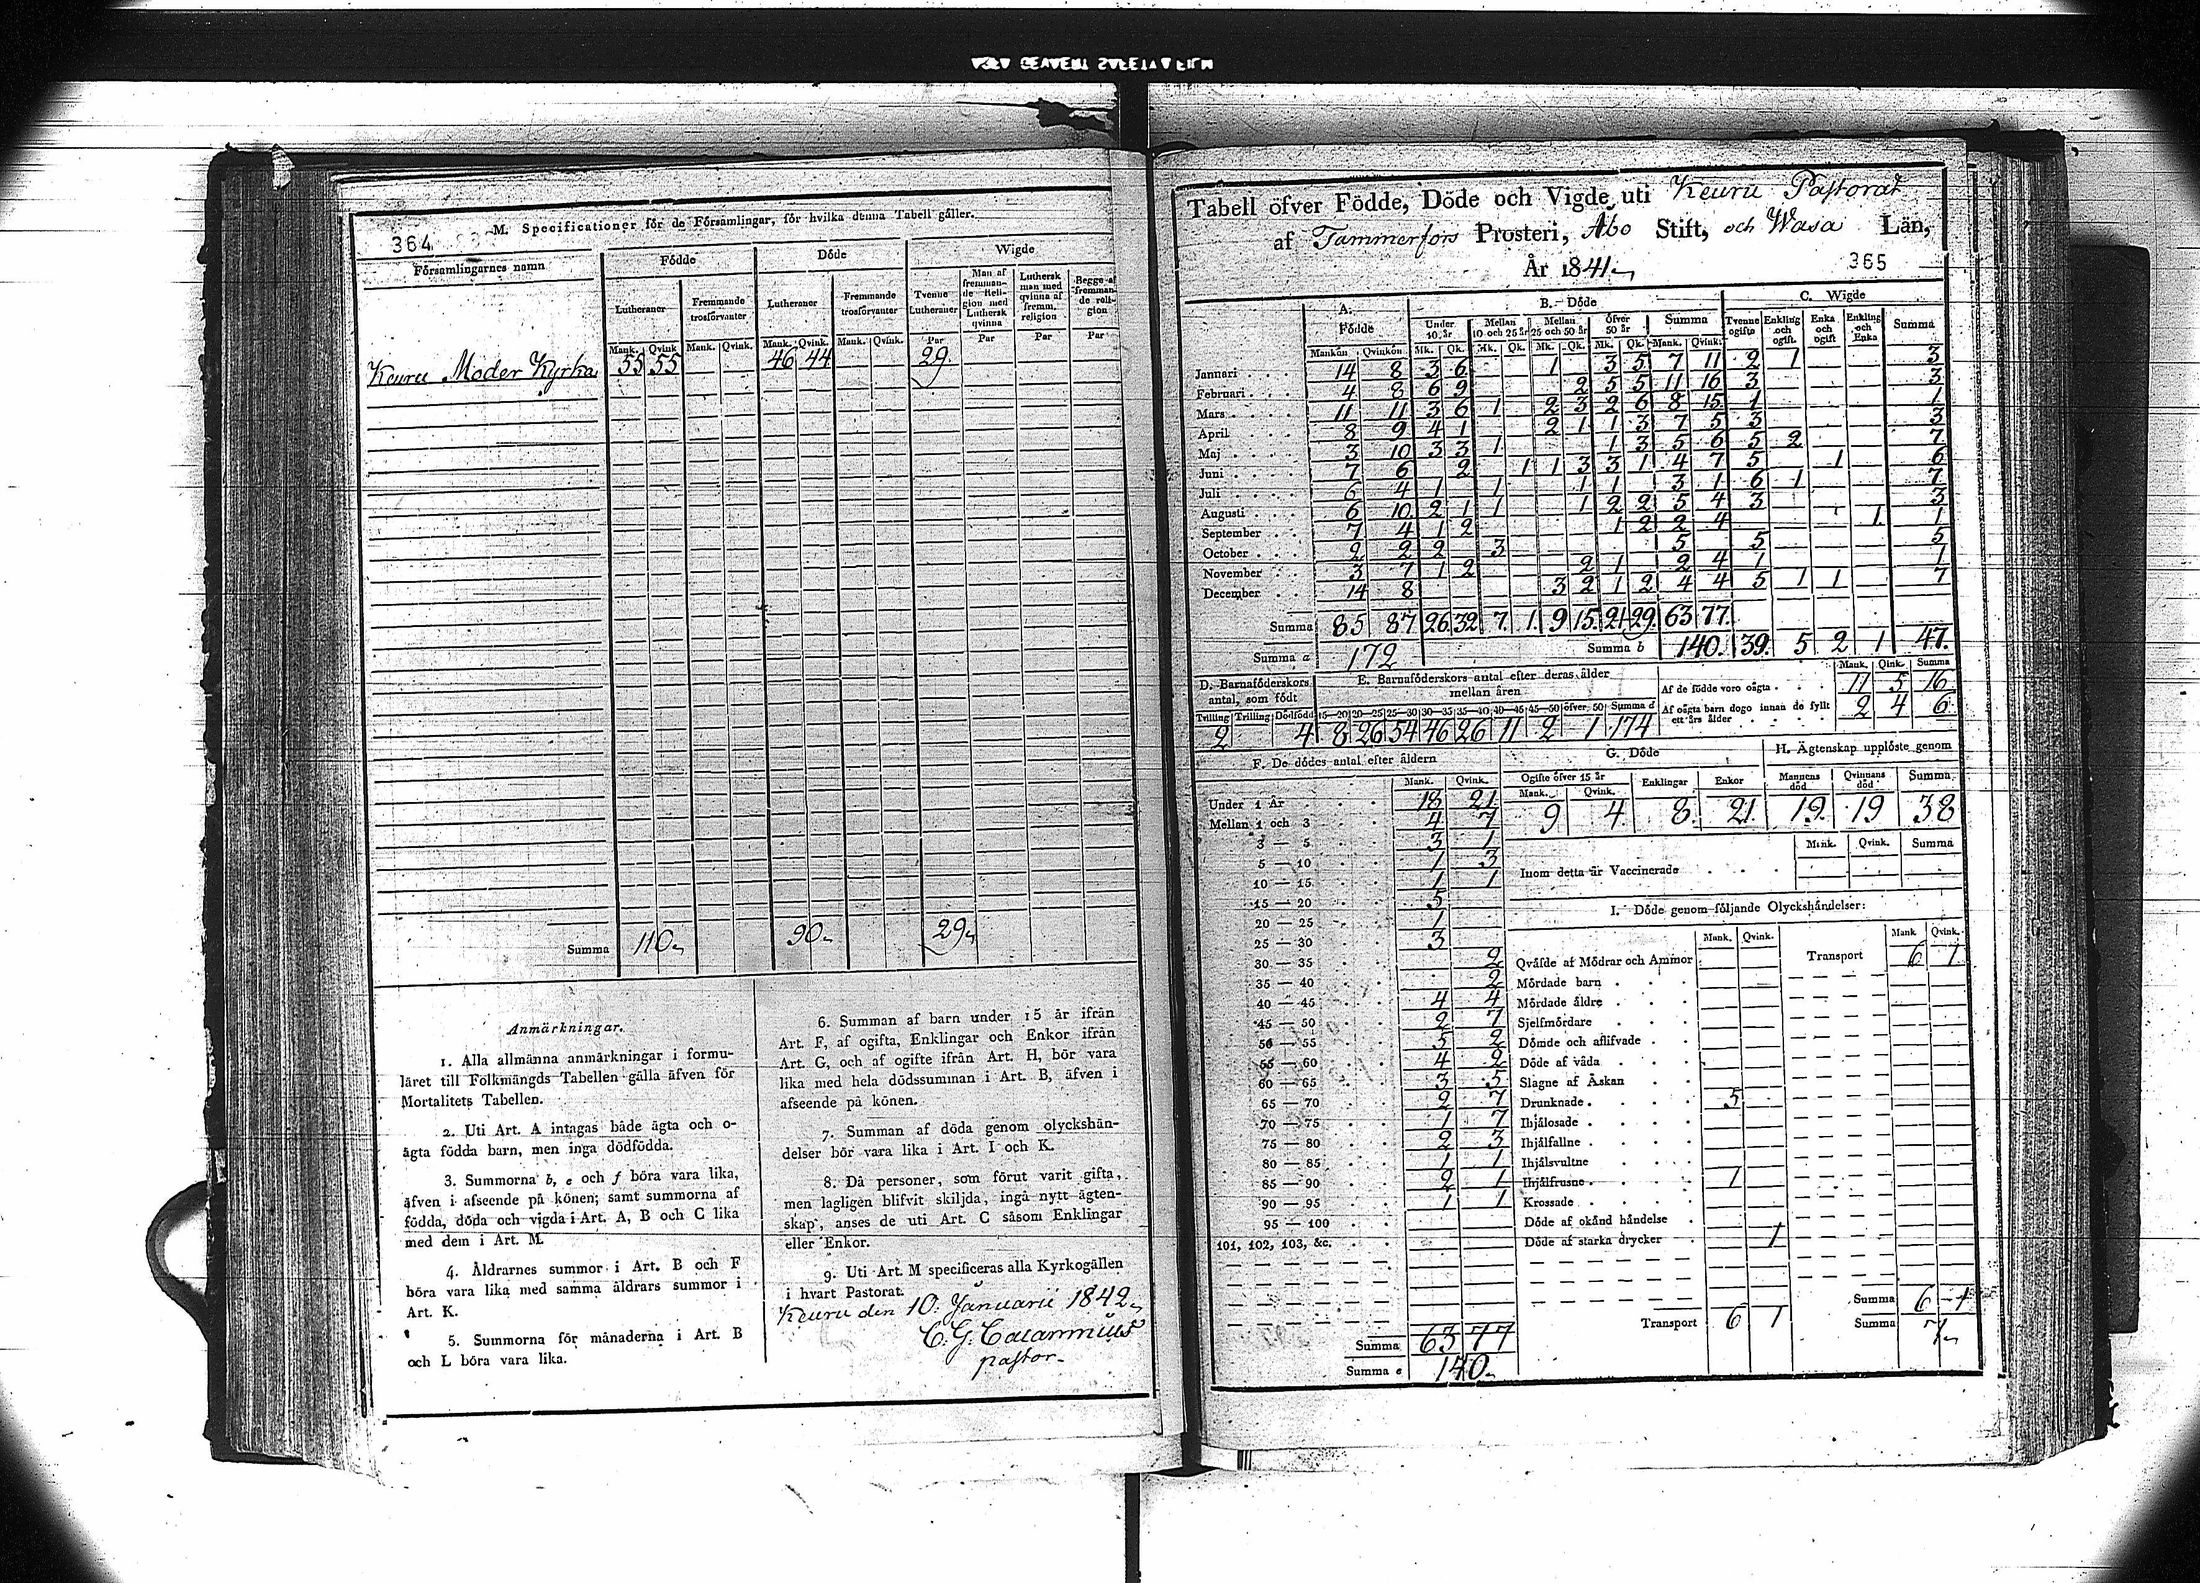 364
M. Specificationer för de Församlingar, för hvilka denna Tabell gäller.
Församlingarnes namn
Födde
Döde
Wigde
Lutheraner
Fremmande trosförvanter
Lutheraner
Fremmande trosförvanter
Tvenne Lutheraner
Man af fremmande Religion med Luthersk qvinna
Luthersk man med qvinna af fremm. religion
Begge af fremmande religion
Mank. Qvink Mank. Qvink. Mank. Qvink. Mank. Qvink. Par Par Par Par
Keuru Moder Kyrka 55 55 46 44 29.
Summa 110 90 29
Anmärkningar.
1. Alla allmänna anmärkningar i formu-
läret till Folkmängds Tabellen gälla äfven för
Mortalitets Tabellen.
2. Uti Art. A intagas både ägta och o-
ägta födda barn, men inga dödfödda.
3. Summorna b, e och f böra vara lika,
äfven i afseende på könen; samt summorna af
födda, döda och vigda i Art. A, B och C lika
med dem i Art. M.
4. Åldrarnes summor i Art. B och F
böra vara lika med samma åldrars summor i
Art. K.
5. Summorna för månaderna i Art. B
och L böra vara lika.
6. Summan af barn under 15 år ifrån
Art. F, af ogifta, Enklingar och Enkor ifrån
Art. G, och af ogifte ifrån Art. H, bör vara
lika med hela dödssumman i Art. B, äfven i
afseende på könen.
7. Summan af döda genom olyckshän-
delser bör vara lika i Art. I och K.
8. Då personer, som förut varit gifta,
men lagligen blifvit skiljda, ingå nytt ägten-
skap, anses de uti Art. C såsom Enklingar
eller Enkor.
9. Uti Art. M specificeras alla Kyrkogällen
i hvart Pastorat.
Keuru den 10. Januarii 1842
C. G. Calamnius
pastor
Tabell öfver Födde, Döde och Vigde uti Keuru Pastorat
af Tammerfors Prosteri, Åbo Stift, och Wasa Län,
År 1841
365
A. Födde
B. Döde
C. Wigde
Under 10 år
Mellan 10 och 25 år
Mellan 25 och 50 år
Öfver 50 år
Summa
Tvenne ogifte
Enkling och ogift.
Enka och ogift
Enkling och Enka
Summa
Mankön Qvinkön Mk. Qk. Mk. Qk. Mk. Qk. Mk. Qk. Mank. Qvink.
Januari 14 8 3 6 1 3 5 7 11 2 1 3
Februari 4 8 6 9 2 5 5 11 16 3 3
Mars 11 11 3 6 1 2 3 2 6 8 15 1 1
April 8 9 4 1 2 1 1 3 7 5 3 3
Maj 3 10 3 3 1 1 3 5 6 5 2 7
Juni 7 6 2 1 1 3 3 1 4 7 5 1 6
Juli 6 4 1 1 1 1 3 1 6 1 7
Augusti 6 10 2 1 1 1 2 2 5 4 3 3
September 7 4 1 2 1 2 2 4 1 1
October 2 2 2 3 5 5 5
November 3 7 1 2 2 1 2 4 1 1
December 14 8 3 2 1 2 4 4 5 1 1 7
Summa 85 87 26 32 7 1 9 15 21 29 63 77
Summa a 172
Summa b 140. 39. 5 2 1 47.
D. Barnaföderskors antal, som födt
E. Barnaföderskors antal efter deras ålder mellan åren
Mank. Qink. Summa
Af de födde voro oägta 11 5 16
Af oägta barn dogo innan de fyllt ett års ålder 2 4 6
Tvilling Trilling Dödfödd 15—20 20—25 25—30 30—35 35—40 40—45 45—50 öfver 50 Summa d
2 4 8 26 54 46 26 11 2 1 174
F. De dödes antal efter åldern
Mank. Qvink.
Under 1 År 18 21
Mellan 1 och 3 4 7
3 — 5 3 1
5 — 10 1 3
10 — 15 1 1
15 — 20 5
20 — 25 1
25 — 30 3
30 — 35 2
35 — 40 2
40 — 45 4 4
45 — 50 2 7
50 — 55 5 2
55 — 60 4 2
60 — 65 3 5
65 — 70 2 7
70 — 75 1 7
75 — 80 2 3
80 — 85 1 1
85 — 90 2 1
90 — 95 1 1
95 — 100
101, 102, 103, &c.
Summa 63 77
Summa e 140
G. Döde
Ogifte öfver 15 år
Enklingar
Enkor
Mank. Qvink.
9 4 8 21
H. Ägtenskap upplöste genom
Mannens död
Qvinnans död
Summa
19 19 38
Mank. Qvink. Summa
Inom detta år Vaccinerade
I. Döde genom följande Olyckshändelser:
Mank. Qvink. Mank Qvink.
Qväfde af Mödrar och Ammor
Transport 6 1
Mördade barn
Mördade äldre
Sjelfmördare
Dömde och aflifvade
Döde af våda
Slagne af Åskan
Drunknade 5
Ihjälosade
Ihjälfallne
Ihjälsvultne
Ihjälfrusne 1
Krossade
Döde af okänd händelse
Döde af starka drycker 1
Transport 6 1
Summa 6 1
Summa 7